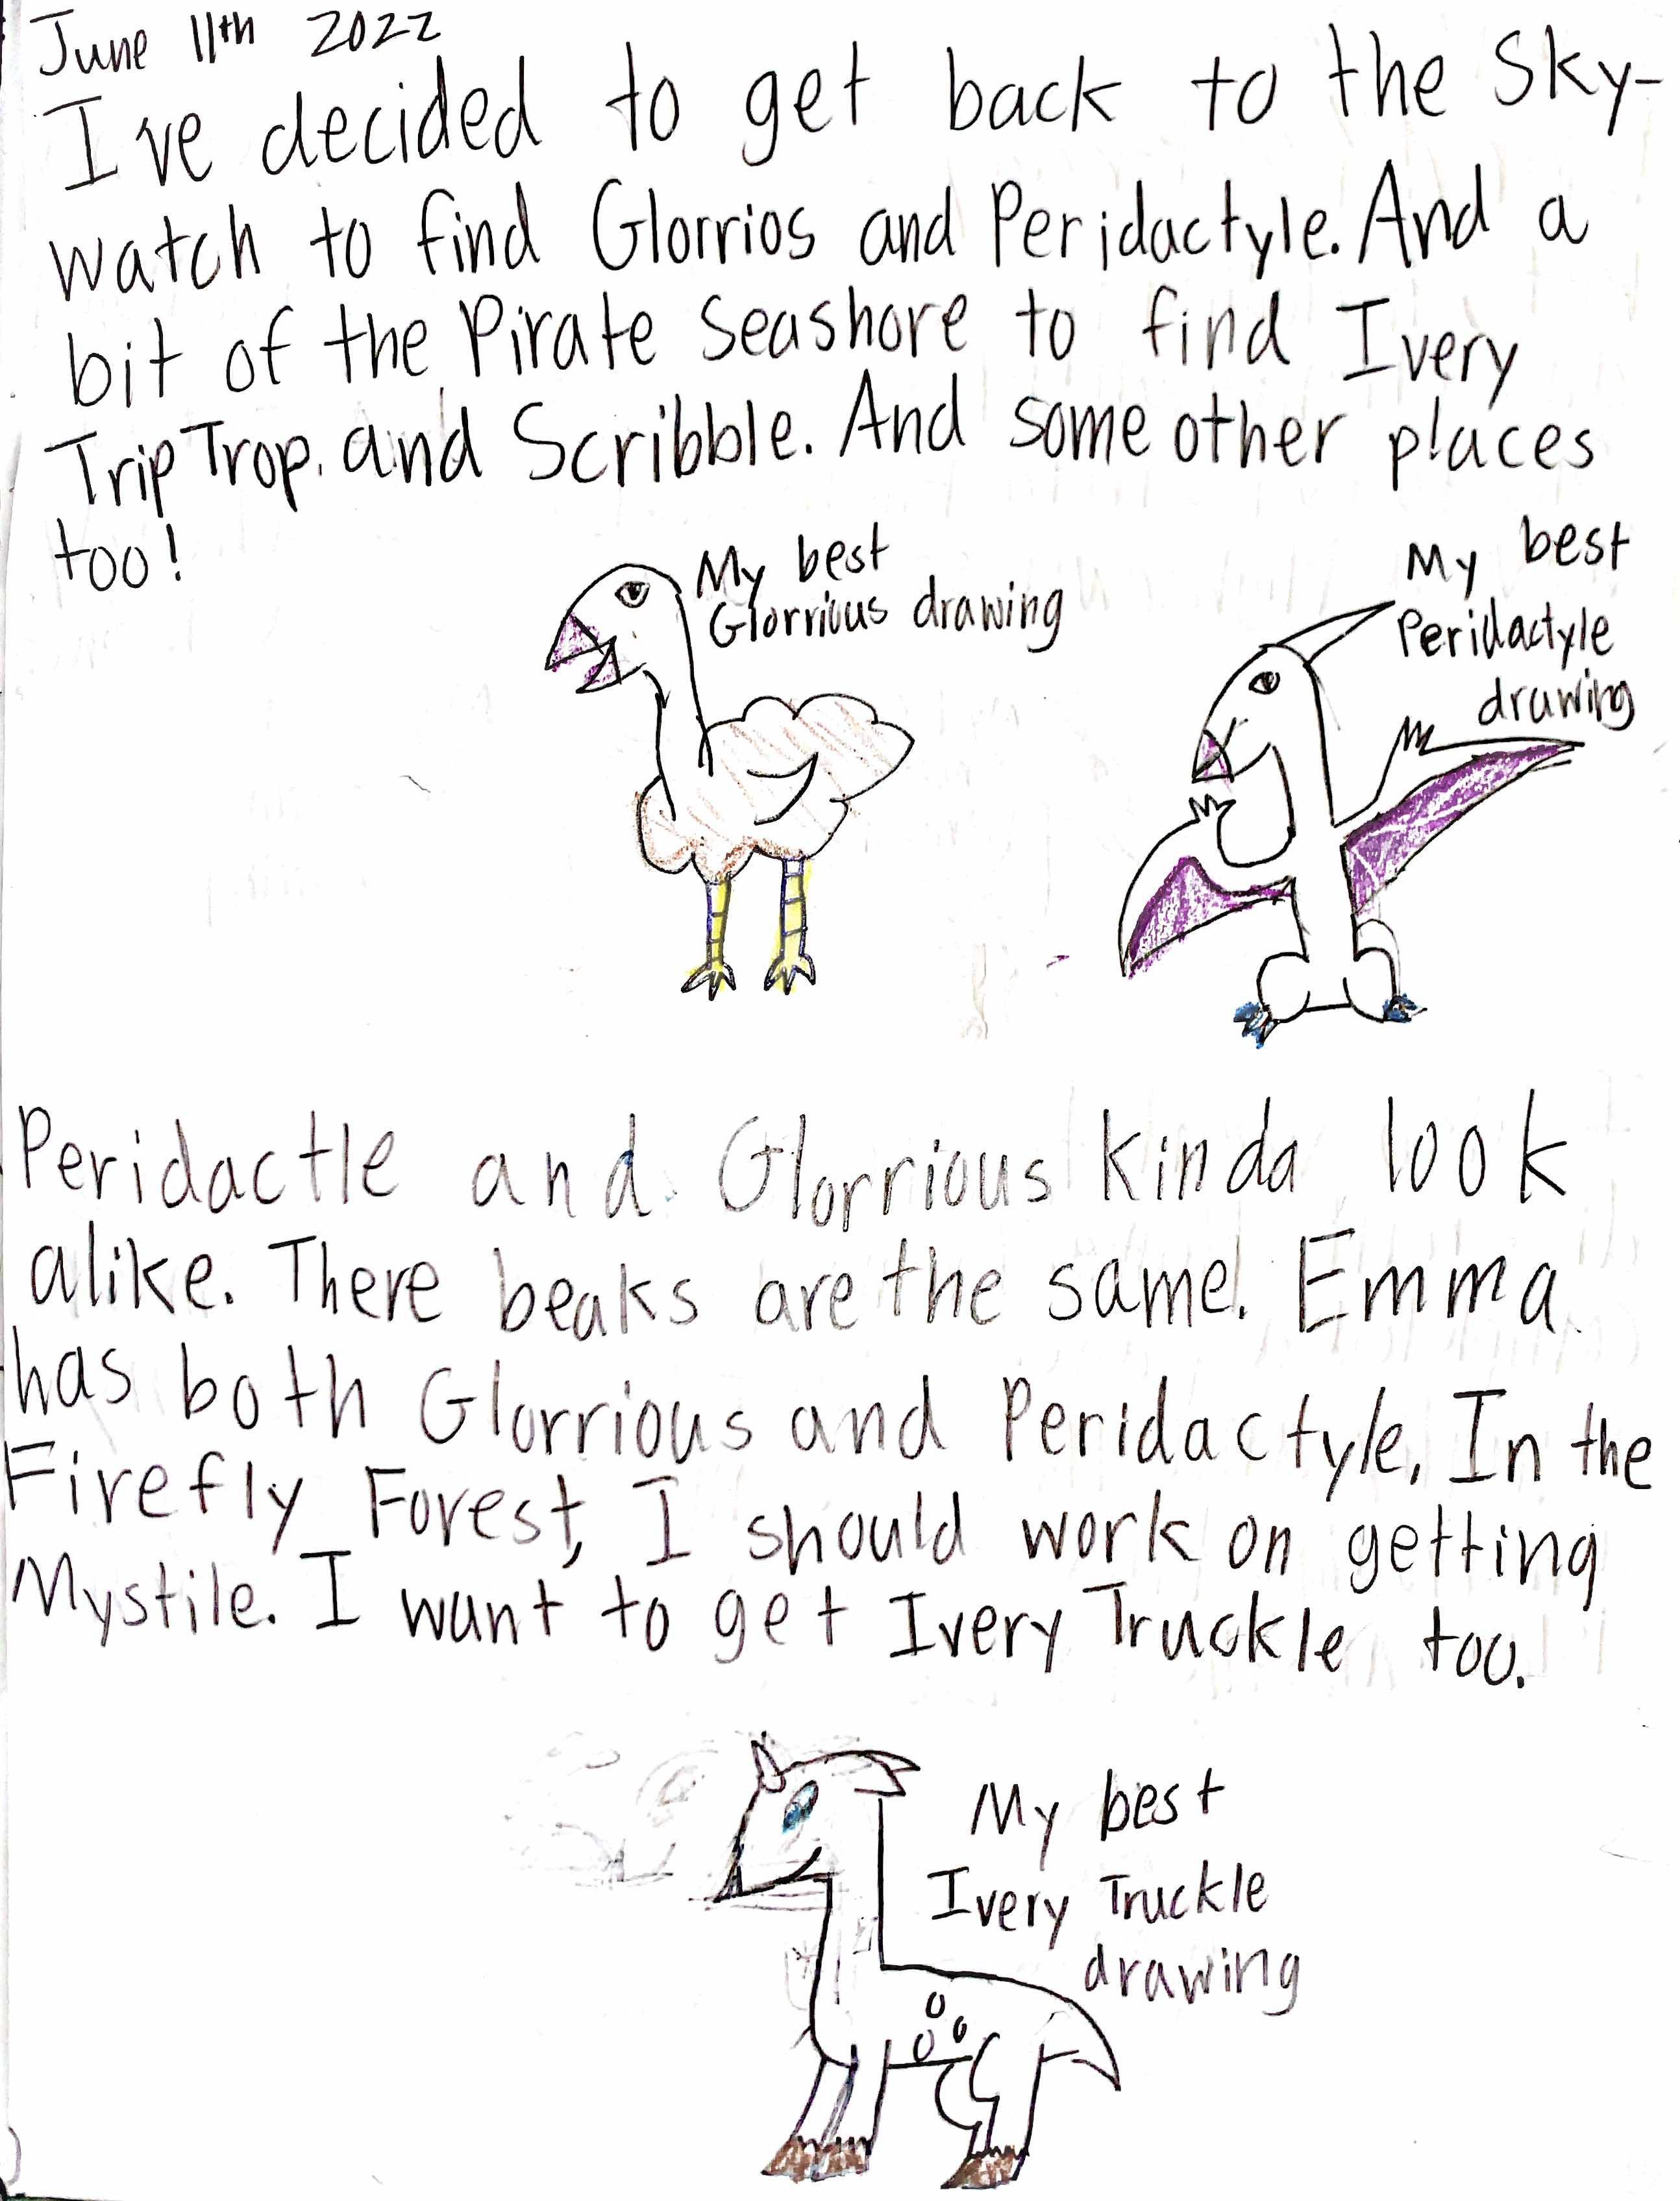 June 11th 2022
I've decided to get back to the Sky-
watch to find Glorrios and Peridactyle. And a
bit of the Pirate Seashore to find Ivery
Trip Trop. and Scribble. And some other places
too!
My best
Glorrious drawing
My best
Peridactyle
drawing
Peridactle and Glorrious kinda look
alike. There beaks are the same. Emma
has both Glorrious and Peridactyle. In the
Firefly Forest, I should work on getting
Mystile. I want to get Ivery Truckle too.
My best
Ivery Truckle
drawing